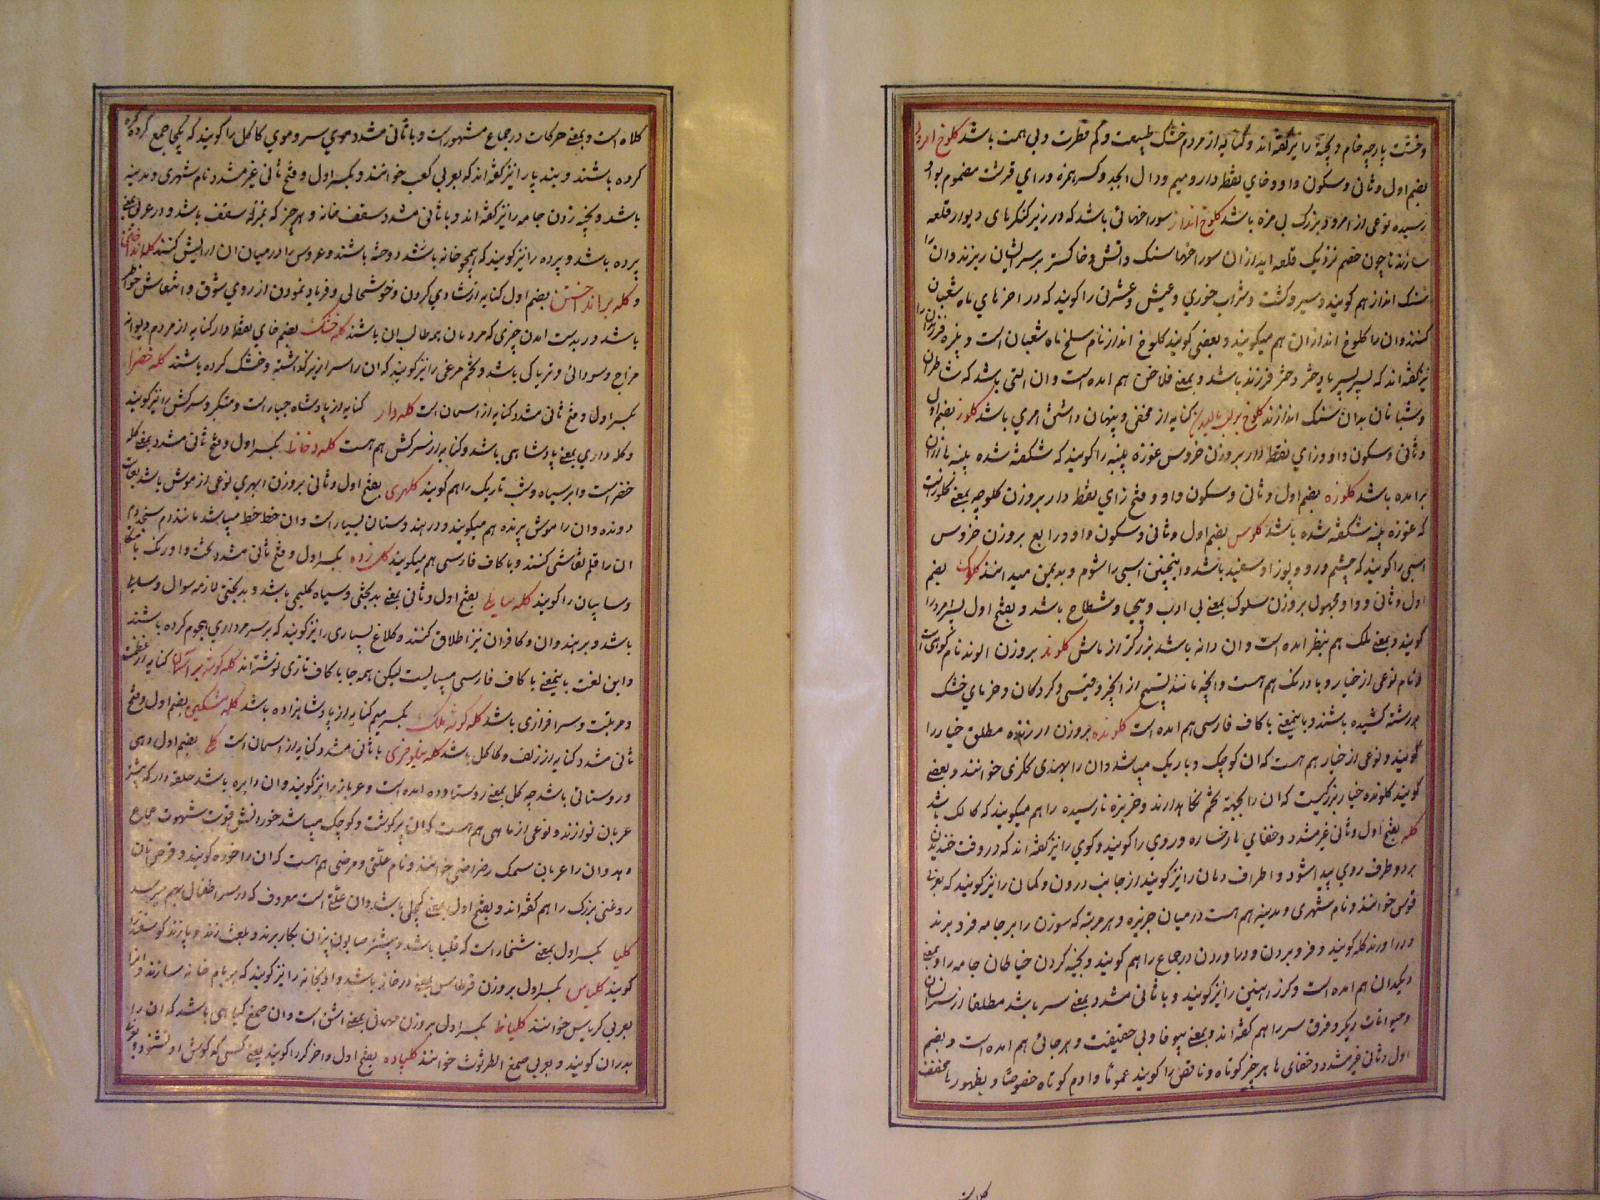 وخشت پارچه خام و پخته را نیز گفته اند و کنایه از مردم خشک طبیعت و کم فطرت و بی همت باشد کلوخ امرود
بضم اول وثانی وسکون واو وخای نقطه دار ومیم ودال ابجد وکسر همزه ورای قرشت مضموم بواو
رسیده نوعی از امرود بزرگ بی مزه باشد کلوخ انداز سوراخهائی باشد که در زیر کنکرهای دیوار قلعه
سازند تا چون خصم نزدیک قلعه اید ازان سوراخها سنک واتش وخاکستر بر سر ایشان ریزند وان را
سنک انداز هم کویند وسیر وکشت وشراب خوری وعیش وعشرتی را کویند که در اخرهای ماه شعبان
کنند وان را کلوخ اندازان هم میکویند و بعضی کویند کلوخ انداز نام سلخ ماه شعبان است و
نیز کفته اند که پسر پسر یا دختر دختر فرزند باشد و بمعنی فلاخن هم امده است وان التی باشد که شاطران
وشبانان بدان سنک اندازند کلوخ بر لب مالیدن کنایه از مخفی و پنهان داشتن امری باشد کلوز بضم اول
وثانی وسکون واو وزای نقطه دار بروزن خروس غوزه پنبه را کویند که شکفته شده پنبه ازان
برامده باشد کلوزه بضم اول وثانی وسکون واو و فتح زای نقطه دار بروزن کلوچه بمعنی کلوز است
که غوزه پنبه شکفته شده باشد کلوس بضم اول وثانی وسکون واو ورابع بروزن خروس
اسبی را کویند که چشم ورو و پوز او سفید باشد واینچنین اسبی را شوم وبدیمن میدانند کلوک بضم
اول وثانی و واو مجهول بروزن سلوک بمعنی بی ادب وبیحیا وشطاح باشد و بفتح اول پسر امرد را
کویند وبمعنی ملک هم بنظر امده است وان دانه باشد بزرکتر از ماش کلوند بروزن الوند نام کوهی است
ونام نوعی از خیار وبادرنک هم هست وانچه مانند تسبیح از انجیر وقیسی وکردکان وخرمای خشک
برشته کشیده باشند وباینمعنی با کاف فارسی هم امده است کلونده بروزن ارزنده مطلق خیار را
کویند و نوعی از خیار هم هست که ان کوچک و باریک میباشد وان را بهندی ککری خوانند و بعضی
کویند کلونده خیار بزرکیست که ان را بجهة تخم نکاه دارند وخربزه نارسیده را هم میکویند که کالک باشد
کله بفتح اول وثانی غیر مشدد وخفای ها رخساره وروی را کویند وکوی را نیز کفته اند که در وقت خندیدن
بر دو طرف روی پیدا شود و اطراف دهان را نیز کویند از جانب درون وکمان را نیز کویند که بعربی
قوس خوانند ونام شهری ومدینه هم هست درمیان جزیره و هر مرتبه که سوزن را بر جامه فرو برند
و براورند کله کویند و فرو بردن وبراوردن در جماع را هم کویند و بخیه کردن خیاطان جامه را وبمعنی
دیکدان هم امده است وکرز اهنین را نیز کویند و با ثانی مشدد بمعنی سر باشد مطلقا از انسان
وحیوانات دیکر وفرق سر را هم کفته اند وبمعنی بیوفا وبی حقیقت وهرجائی هم امده است وبضم
اول وثانی غیر مشدد وخفای ها هر چیز کوتاه وناقص را کویند عموما وادم کوتاه خصوصا و بظهور ها مخفف
کلاه است وبمعنی حرکات در جماع مشهور است و با ثانی مشدد موی سر وموی کاکل را کویند که یکجا جمع کرده کره
کرده باشند وبند پا را نیز کفته اند که بعربی کعب خوانند وبکسر اول و فتح ثانی غیر مشدد نام شهری ومدینه
باشد و بخیه زدن جامه را نیز کفته اند وبا ثانی مشدد سقف خانه و هر چیز که بمنزله سقف باشد و در عربی بمعنی
پرده باشد و پرده را نیز کویند که همچو خانه باشد دوخته باشند وعروس را درمیان ان ارایش کنند کله انداختن
و کله برانداختن بضم اول کنایه از شادی کردن وخوشحالی وفریاد نمودن از روی شوق و انتعاش خاطر
باشد در بدست امدن چیزی که مردمان همه طالب ان باشند کله خشک بضم خای نقطه دار کنایه از مردم دیوانه
مزاج وسودائی وتریاکی باشد و تخم مرغی را نیز کویند که ان را سرازیر کذاشته و خشک کرده باشند کله خضرا
بکسر اول و فتح ثانی مشدد کنایه از اسمان است کله دار کنایه از پادشاه جبار است ومتکبر وسرکش را نیز کویند
وکله داری بمعنی پادشاهی باشد وکنایه از سرکش هم هست کله دخانی بکسر اول و فتح ثانی مشدد بمعنی کله
خضر است وابر سیاه وشب تاریک را هم کویند کلهری بفتح اول وثانی بروزن ابهری نوعی از موش باشد بغایت
دونده وان را موش پرنده هم میکویند ودر هندوستان بسیار است وان خط خط میباشد مانند دم سنجاب دم
ان را قلم نقاشی کنند وبا کاف فارسی هم میکویند کله زده بکسر اول و فتح ثانی مشدد تخت واورنک با
وسایبان را کویند کله سایی بفتح اول وثانی بمعنی بدبختی وسیاه کلیمی باشد و بدبختی لازمه سوال وسایلی
باشد وبر هندوان وکافران نیز اطلاق کنند وکلاغ بسیاری را نیز کویند که بر سر مرداری هجوم کرده باشند
واین لغت باینمعنی با کاف فارسی مناسب است لیکن همه جا با کاف تازی نوشته اند کله کوشه بر اسمان کنایه از عظمت
ومرتبت وسرافرازی باشد کله کوشه ملک بکسر میم کنایه از پادشاهزاده باشد کله مشکین بضم اول وفتح
ثانی مشدد کنایه از زلف و کاکل باشد کله نیلوفری با ثانی مشدد کنایه از اسمان است کلی بضم اول دهی
وروستائی باشد چه کل بمعنی روستا وده امده است وعربان را نیز کویند وان دایره باشد حلقه دار که بیشتر
عربان نوازند و نوعی از ماهی هم هست که ان پرکوشت وکوچک میباشد خوردنش قوت شهوت جماع
دهد وان را عربان سمک رضراضی خوانند ونام علتی ومرضی هم هست که ان را خوره کویند وقرص نان
روغنی بزرک را هم کفته اند وبفتح اول بمعنی کچلی باشد وان علتی است معروف که در سر اطفال بهم میرسد
کلیا بکسر اول بمعنی شخار است که قلیا باشد وبیشتر صابون پزان بکار برند و بلغت زند و پازند کوسفند
کویند کلیاس بکسر اول بروزن قرطاس بمعنی درخانه باشد وادبخانه را نیز کویند که بر بام خانه سازند وان را
بعربی کریاس خوانند کلیانی بکسر اول بروزن جهانی بمعنی اشق است وان صمغ کیاهی باشد که ان را
بدران کویند و بعربی صمغ الطرثوث خوانند کلیاوه بفتح اول و اخر کر را کویند یعنی کسی که کوش او نشنود